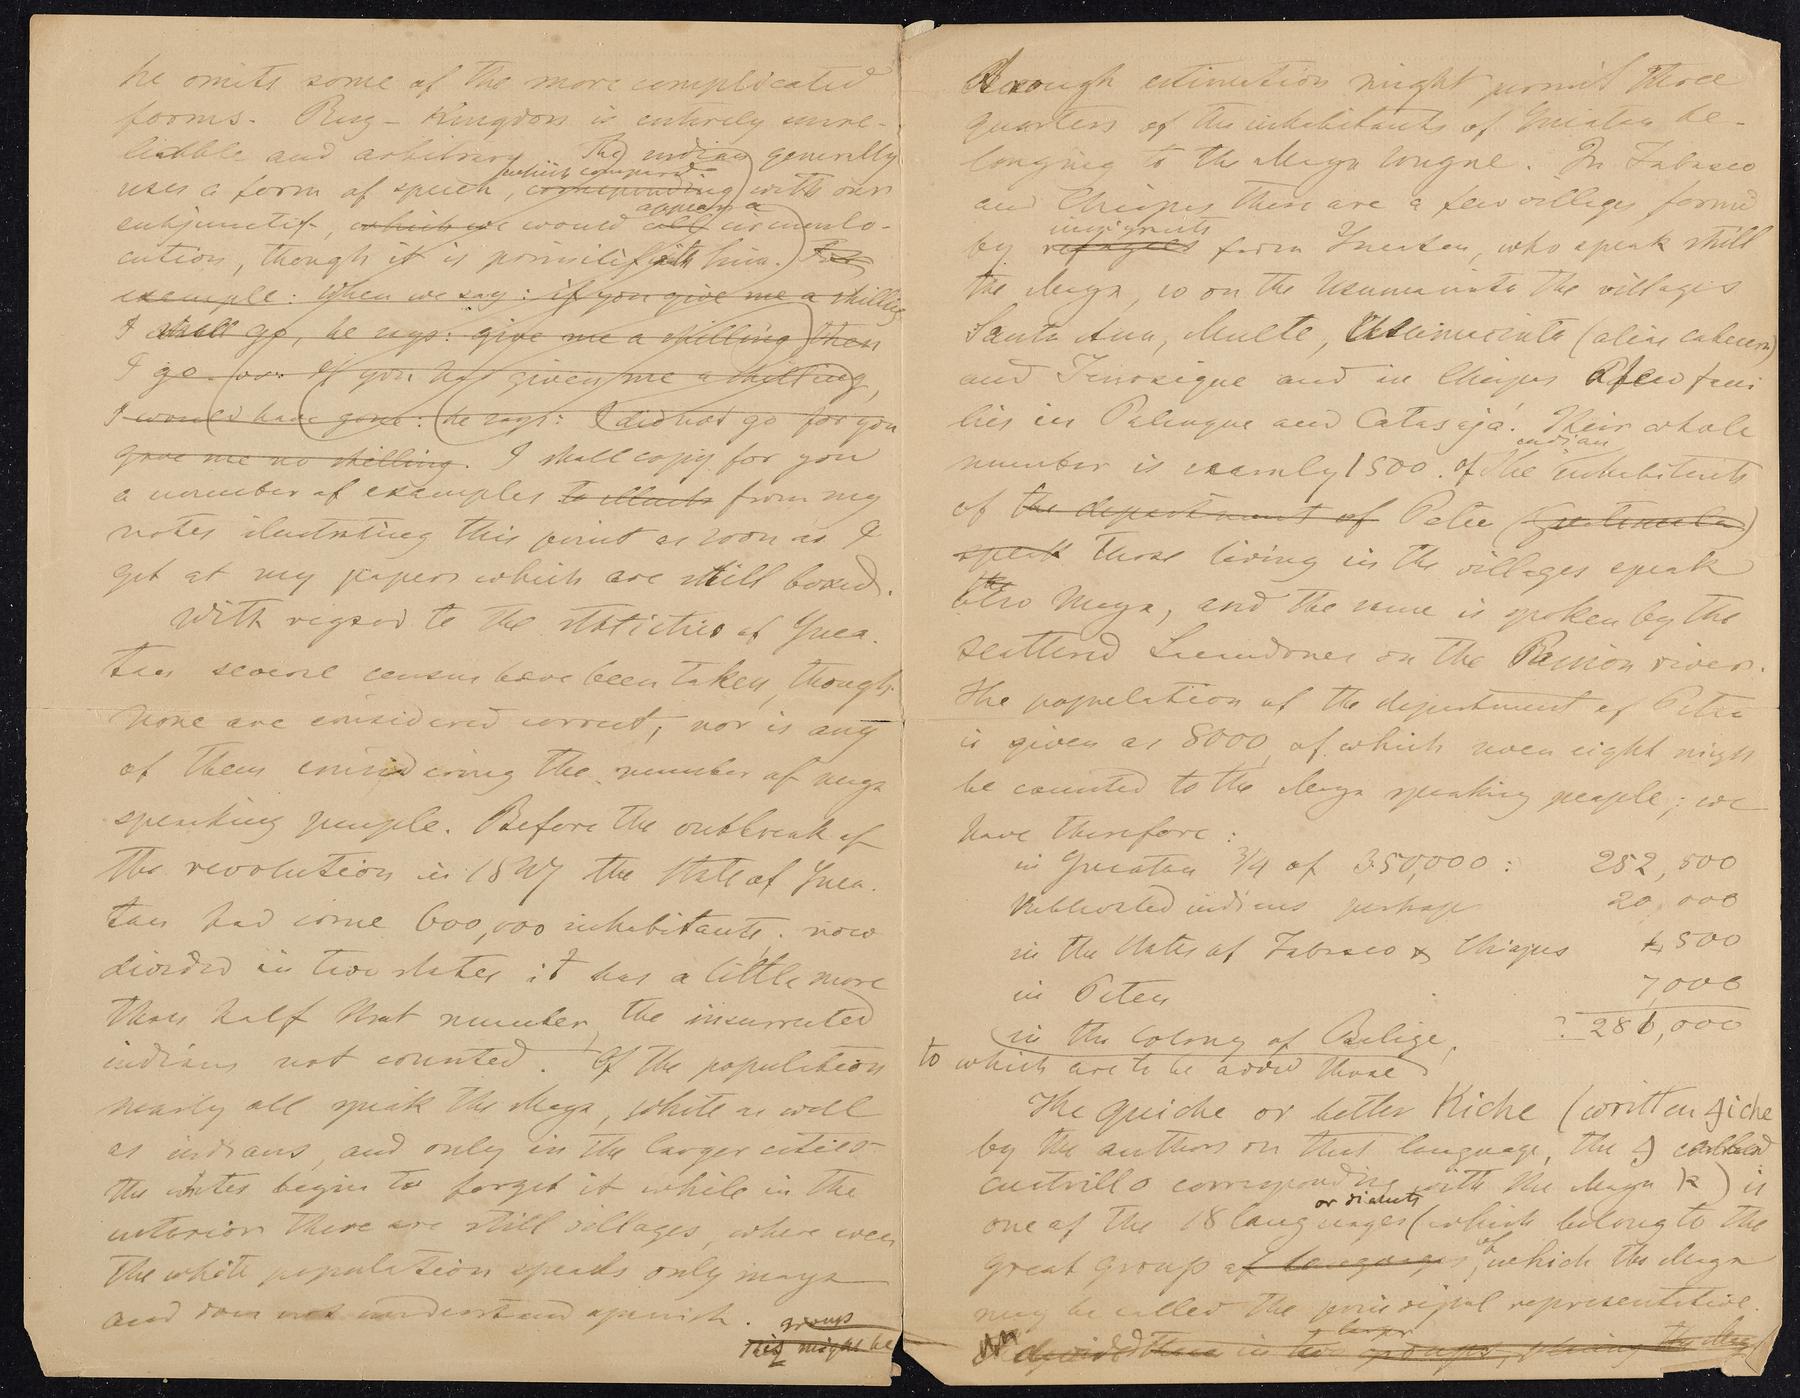 he omits some of the more complicated
forms. Ruz - Kingdon is entirely unre-
liable and arbitrary. The indian generally
which compared
uses a form of speech, corresponding with our
appear a
subjunctif, which we would call circumlo-
cution, though it is primitif with him. For
example: when we say: if you give me a shilling
I shall go, he says: give me a shilling then
I go. or: If you had given me a shilling,
I would have gone: he says: I did not go for you
gave me no shilling. I shall copy for you
a number of examples to illustr from my
notes ilustrating this point as soon as I
get at my papers which are still boxed.
With regard to the statistics of Yuca-
tan several census have been taken, though
none are considered correct, nor is any
of them considering the number of maya
speaking people. Before the outbreak of
the revolution in 1847 the State of Yuca-
tan had some 600,000 inhabitants; now
divided in two states it has a little more
than half that number, the insurrected
indians not counted. Of the population
nearly all speak the Maya, white as well
as indians, and only in the larger cities
the whites begin to forget it while in the
interior there are still villages, where even
the white population speaks only maya
and does not understand spanish.
groups
This might be
A rough estimation might permit three
quarters of the inhabitants of Yucatan be-
longing to the Maya tongue. In Tabasco
and Chiapas there are a few villages formed
immigrants
by refugees from Yucatan, who speak still
the Maya, so on the Usumacinta the villages
Santa Ana, Multe, Usumacinta (alias cabecera)
and Tenosique and in Chiapas a few fami
lies in Palenque and Catasajá. Their whole
indian
number is scarcely 1500. Of the inhabitants
of the department of Peten (Guatemala)
speak those living in the villages speak
the
also Maya, and the same is spoken by the
scattered Lacandones on the Pasion river.
The population of the department of Peten
is given as 8000, of which seven eight might
be counted to the Maya speaking people; we
have therefore:
in Yucatan 3/4 of 350,000: 252,500
Revolted indians perhaps 20,000
in the States of Tabasco & Chiapas 1,500
in Peten 7,000
281,000
in the Colony of Belize,
to which are to be added those
The Quiche or better Kiche (written 4iche
by the authors on that language, the 4 called
cuatrillo corresponding with the Maya k) is
or dialects
one of the 18 languages (which belong to the
of
great group of languages, which the Maya
may be called the principal representative.
larger
divided them in two groups, the Maya